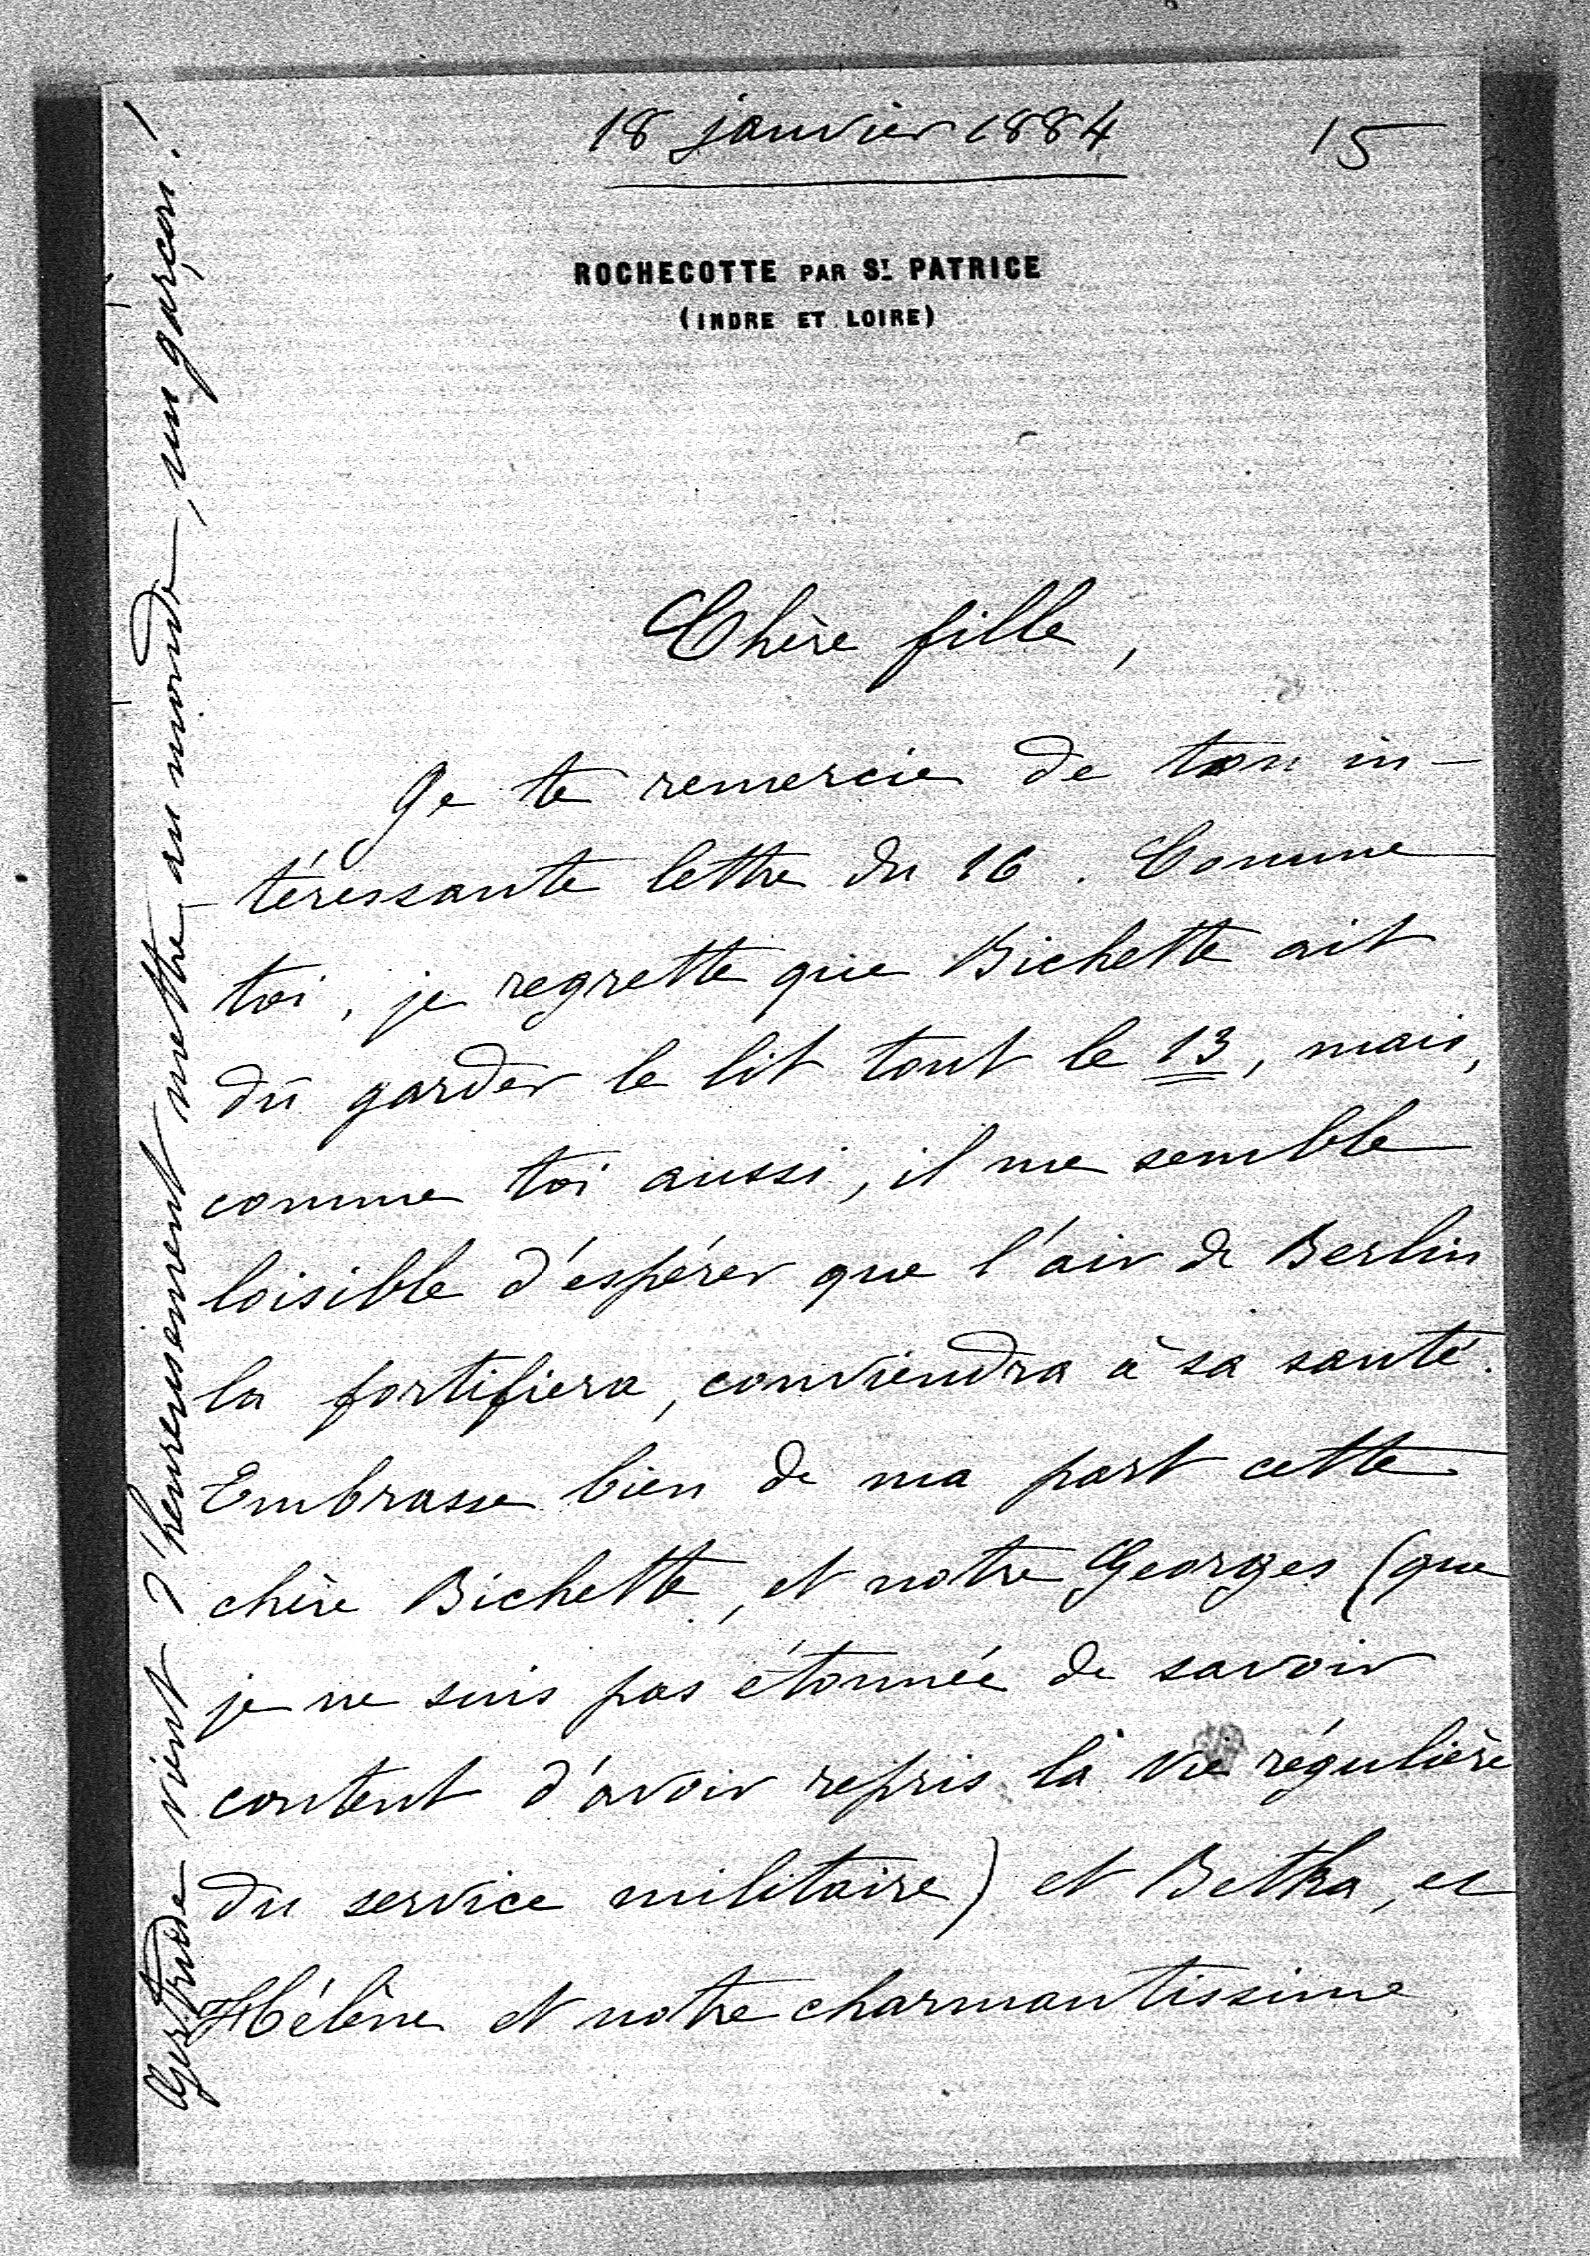 18 janvier 1884
15
ROCHECOTTE PAR ST PATRICE
(INDRE ET LOIRE)
Chère fille,
Je te remercie de ton in-
-téressante lettre du 16. Comme
toi, je regrette que Bichette ait
dû garder le lit tout le 13, mais,
comme toi aussi, il me semble
loisible d'espérer que l'air de Berlin
la fortifiera, conviendra à sa santé.
Embrasse bien de ma part cette
chère Bichette, et notre Georges (que
je ne suis pas étonnée de savoir
content d'avoir repris la vie régulière
du service militaire) et Betka, et
Hélène et notre charmantissime
Gertrude vient d'heureusement mettre au monde, un garçon!